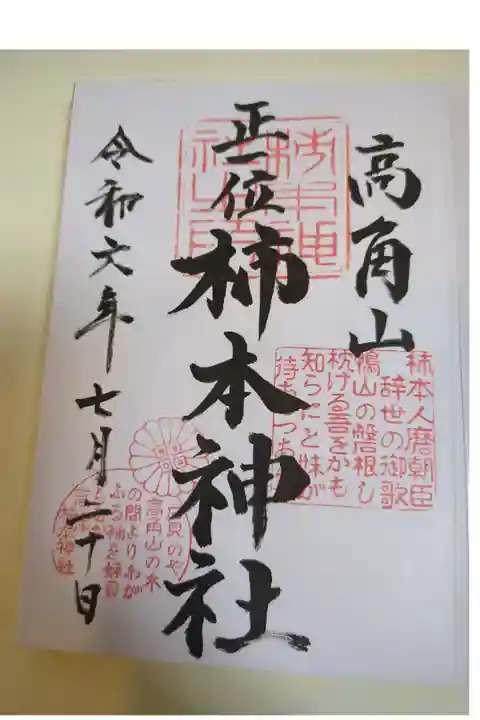 高角山
正一位
柿本神社
令和六年七月二十日
柿本人麿朝臣
辞世の御歌
鴨山の磐根し
枕ける吾をかも
知らにと妹が
待ちつつあ
高角山の木
の間より我が
ふる袖を妹